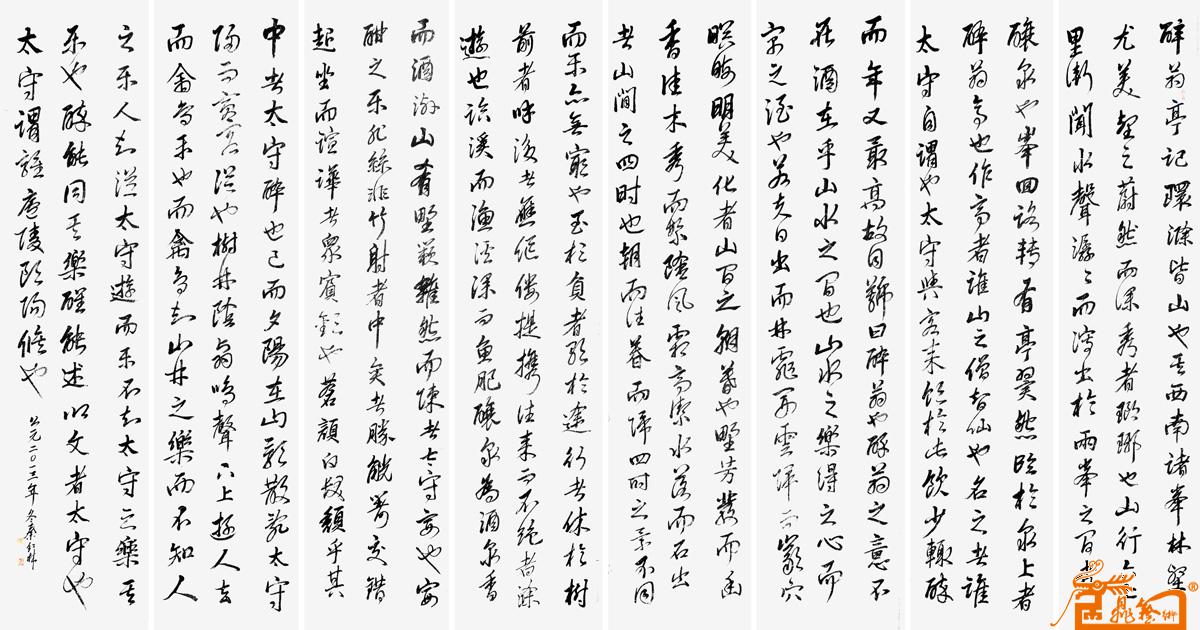 醉翁亭記環滁皆山也其西南諸峯林壑
尤美望之蔚然而深秀者瑯琊也山行六
里漸聞水聲潺々而瀉出於兩峯之間者
釀泉也峯回路轉有亭翼然臨於泉上者
醉翁亭也作亭者誰山之僧智仙也名之者誰
太守自謂也太守與客來飲於此飲少輒醉
而年又最高故自號曰醉翁也醉翁之意不
在酒在乎山水之間也山水之樂得之心而
寓之酒也若夫日出而林霏開雲歸而巖穴
暝晦明變化者山間之朝暮也野芳發而幽
香佳木秀而繁陰風霜高潔水落而石出
者山間之四時也朝而往暮而歸四時之景不同
而樂亦無窮也至於負者歌於途行者休於樹
前者呼後者應傴僂提攜往來而不絕者滁
遊也臨溪而漁溪深而魚肥釀泉為酒泉香
而酒洌山肴野蔌雜然而陳者太守宴也宴
酣之樂非絲非竹射者中奕者勝觥籌交錯
起坐而諠譁者眾賓歡也蒼顏白髮頹乎其
中者太守醉也已而夕陽在山影散亂太守
歸而賓客從也樹林陰翳鳴聲下上遊人去
而禽鳥樂也而禽鳥知山林之樂而不知人
之樂人知從太守遊而樂不知太守之樂其
樂也醉能同其樂醒能述以文者太守也
太守謂誰廬陵歐陽脩也
公元二〇一三年冬